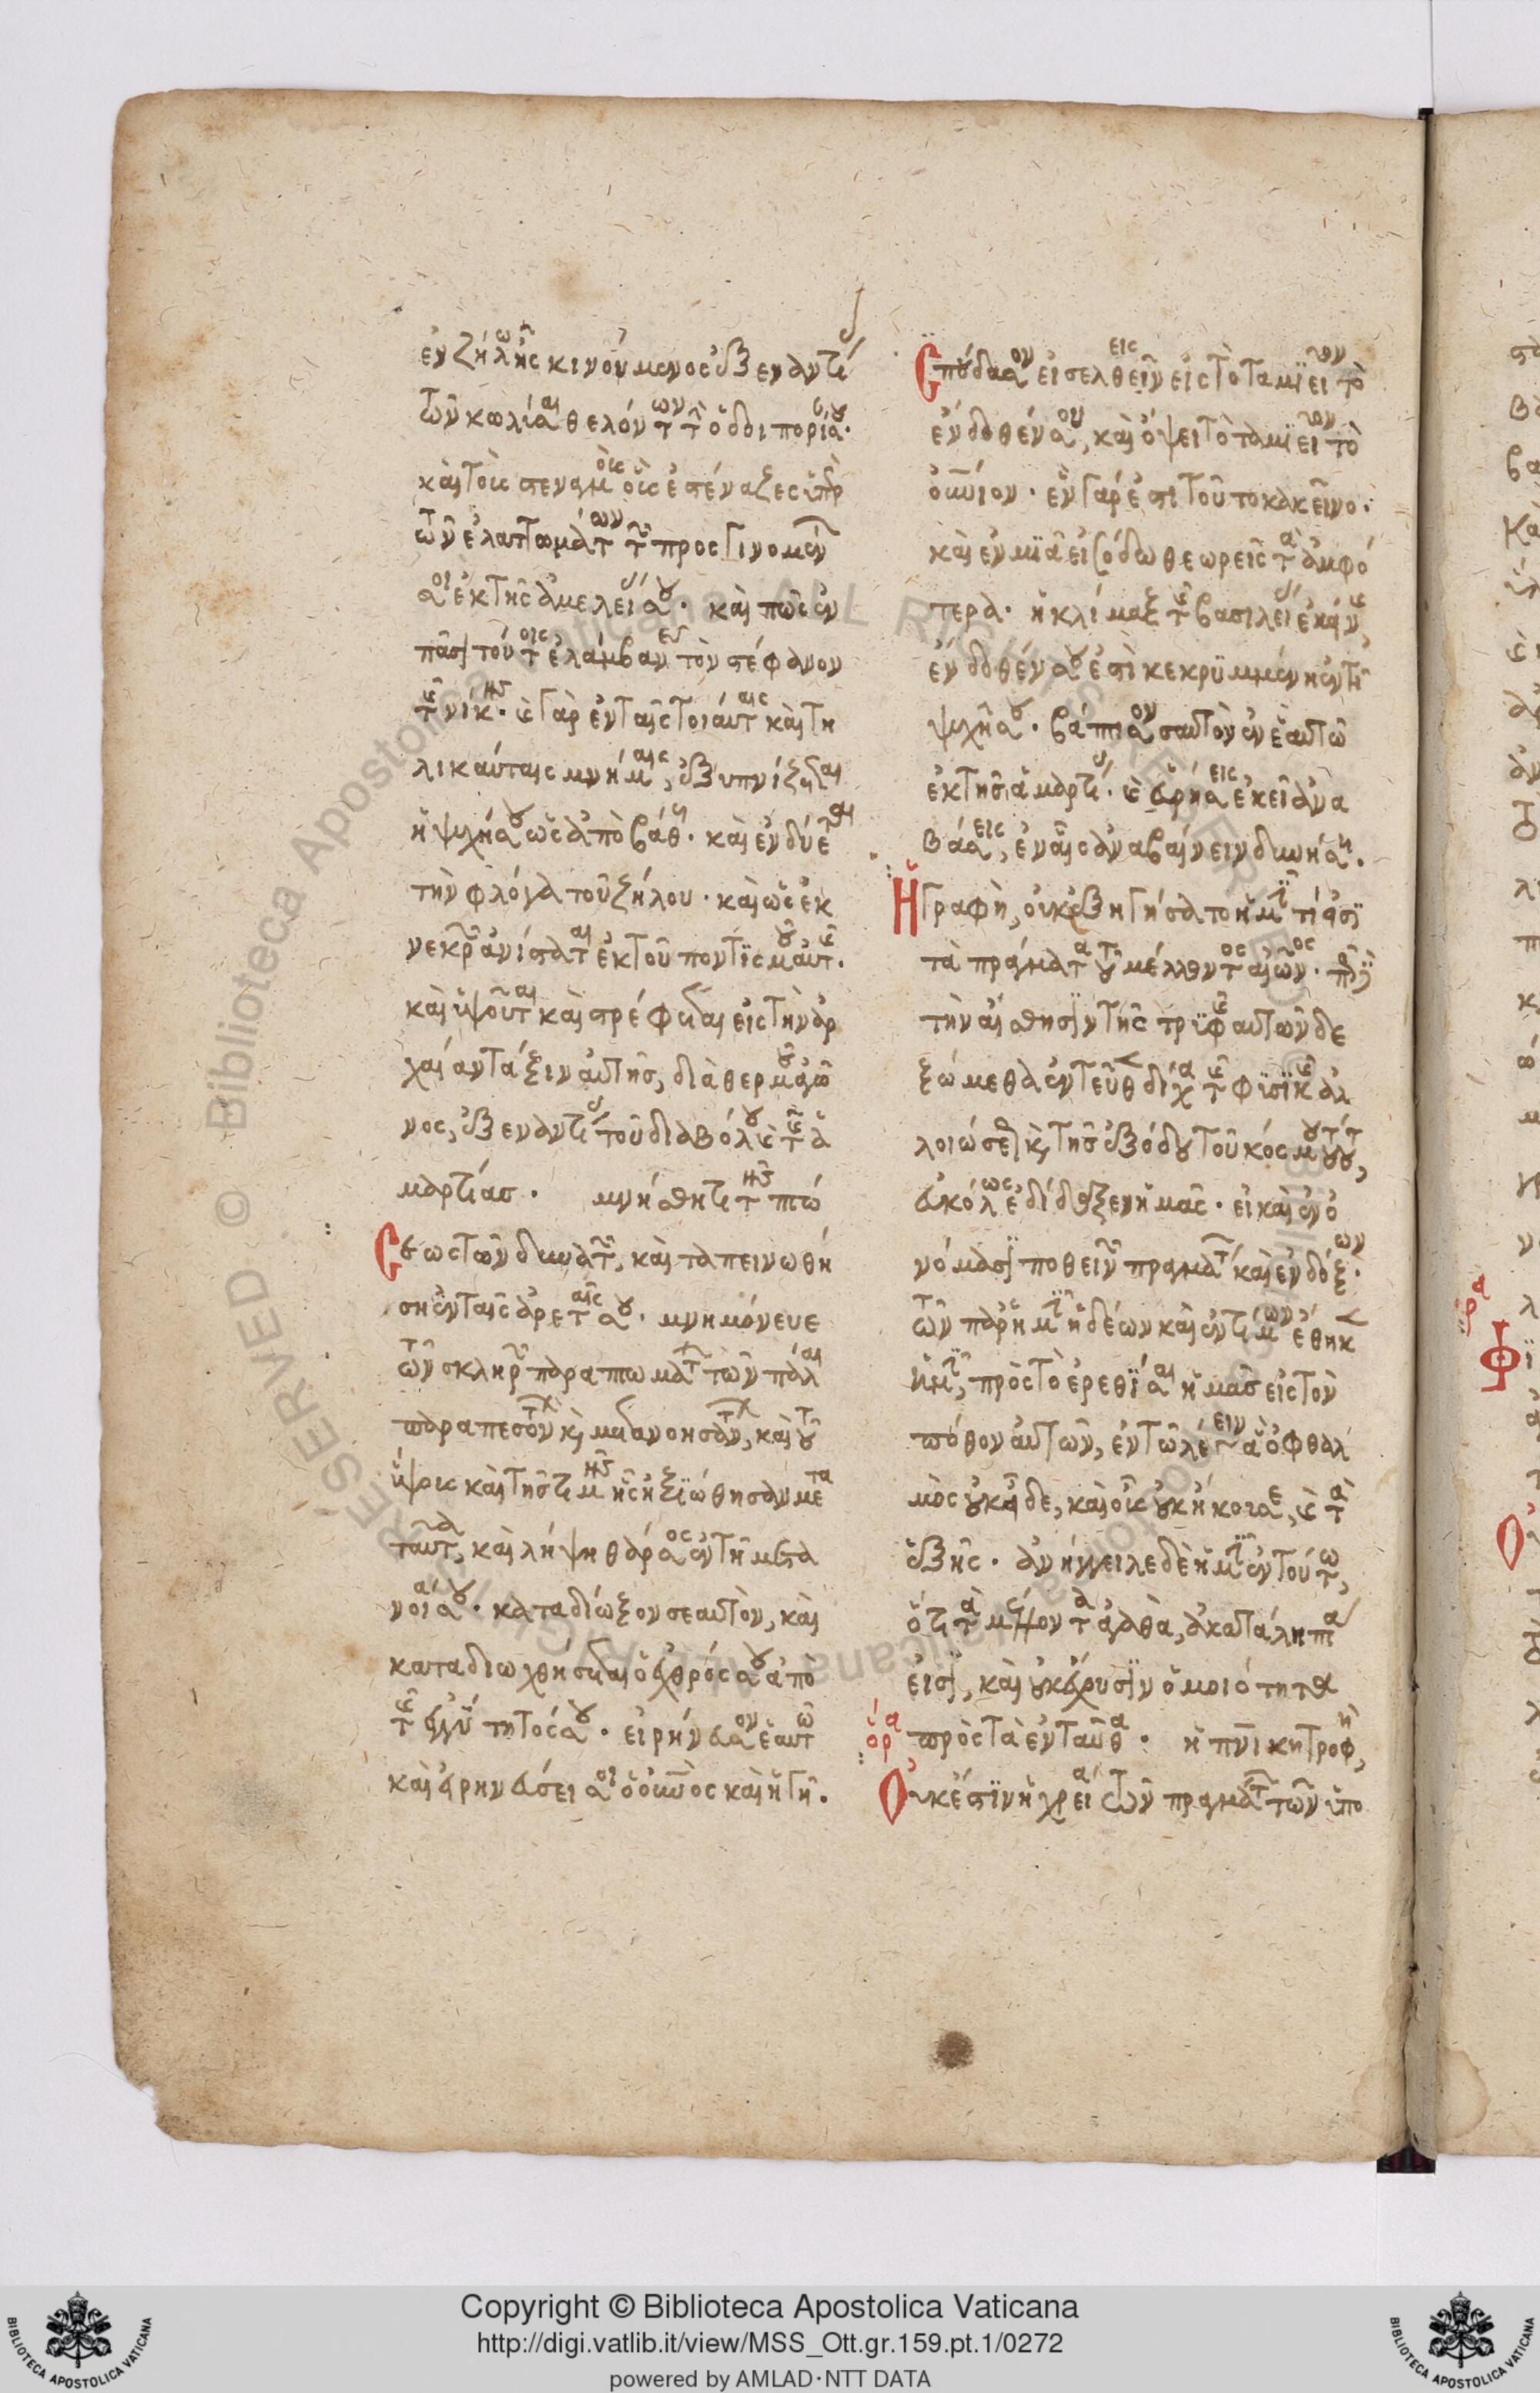 ἐν ζήλω ἧς κινούμενος ἐξεναντί
τῶν κωλύσαι θελόντων τὴν ὁδοιπορίαν σου·
καὶ τοῖς στεναγμοῖς οἷς ἐστέναξες ὑπὲρ
τῶν ἐλαττωμάτων τῶν προσγινομένων
σοι ἐκ τῆς ἀμελείας σου· καὶ πῶς ἐν
πᾶσι τούτοις ἐλάμβανες τὸν στέφανον
τῆς νίκης· ἐν γὰρ ἐν ταῖς τοιαύταις καὶ τη
λικαύταις μνήμαις, ἐξυπνίζεται
ἡ ψυχή σου ὡς ἀπὸ βάθους· καὶ ἐνδύεται
τὴν φλόγα τοῦ ζήλου· καὶ ὡς ἐκ
νεκρῶν ἀνίσταται ἐκ τοῦ ποντισμοῦ αὐτῆς·
καὶ ὑψοῦται καὶ στρέφεται εἰς τὴν ἀρ
χαίαν τάξιν αὐτῆς, διὰ θερμοῦ ἀγῶ
νος, ἐξεναντίας τοῦ διαβόλου καὶ τῆς ἁ
μαρτίας. μνήσθητι τῆς πτώ
σεως τῶν δυνατῶν, καὶ ταπεινωθή
ση ἐν ταῖς ἀρεταῖς σου· μνημόνευε
τῶν σκληρῶν παραπτωμάτων τῶν πάλαι
παραπεσόντων καὶ μετανοησάντων, καὶ τοῦ
ὕψους καὶ τῆς τιμῆς ἧς ἠξιώθησαν με
ταῦτα, καὶ λήψη θάρσος ἐν τῆ μετα
νοία σου· καταδίωξον σεαυτὸν, καὶ
καταδιωχθήσεται ὁ ἐχθρός σου ἀπὸ
τῆς ἐγγύτητός σου· εἰρήνευσον ἑαυτῶ
καὶ εἰρηνεύσει σοι ὁ οὐρανὸς καὶ ἡ γῆ.
Σπούδασον εἰσελθεῖν εἰς τὸ ταμιεῖον τὸ
ἔνδοθέν σου, καὶ ὄψει τὸ ταμιεῖον τὸ
οὐράνιον· ἓν γάρ ἐστι τοῦτο κἀκεῖνο·
καὶ ἐν μιᾶ εἰσόδω θεωρεῖς τὰ ἀμφό
τερα· ἡ κλίμαξ τῆς βασιλείας ἐκείνης,
ἔνδοθέν σου ἐστὶ κεκρυμμένη ἐν τῆ
ψυχῆ σου· βάπτισον σαυτὸν ἐν ἑαυτῶ
ἐκ τῆς ἁμαρτίας· καὶ εὑρήσεις ἐκεῖ ἀνα
βάσεις, ἐν αἷς ἀναβαίνειν δυνήση.
Ἡ γραφὴ, οὐκ ἐξηγήσατο ἡμῖν τί εἰσὶ
τὰ πράγματα τοῦ μέλλοντος αἰῶνος· πῶς
τὴν αἴσθησιν τῆς τρυφῆς αὐτῶν δε
ξώμεθα ἐντεῦθεν δίχα τῆς φυσικῆς ἀλ
λοιώσεως καὶ τῆς ἐξόδου τοῦ κόσμου τούτου,
εὐκόλως ἐδίδαξεν ἡμᾶς· εἰ καὶ ἐν ὀ
νόμασι ποθεινῶν πραγμάτων καὶ ἐνδόξων·
τῶν παρ' ἡμῖν ἡδέων καὶ ἐντίμων ἔθηκεν
ἡμῖν, πρὸς τὸ ἐρεθίσαι ἡμᾶς εἰς τὸν
πόθον αὐτῶν, ἐν τῶ λέγειν ἃ ὀφθαλ
μὸς οὐκ εἶδε, καὶ οὖς οὐκ ἤκουσε, καὶ τὰ
ἑξῆς· ἀνήγγειλε δὲ ἡμῖν ἐν τούτω,
ὅτι τὰ μέλλοντα ἀγαθὰ, ἀκατάληπτα
εἰσὶ, καὶ οὐκ ἔχουσιν ὁμοιότητα
πρὸς τὰ ἐνταῦθα· ἡ πνευματικὴ τροφὴ,
Οὐκ ἔστιν ἡ χρεία τῶν πραγμάτων τῶν ὑπο
Copyright © Biblioteca Apostolica Vaticana
http://digi.vatlib.it/view/MSS_Ott.gr.159.pt.1/0272
powered by AMLAD·NTT DATA